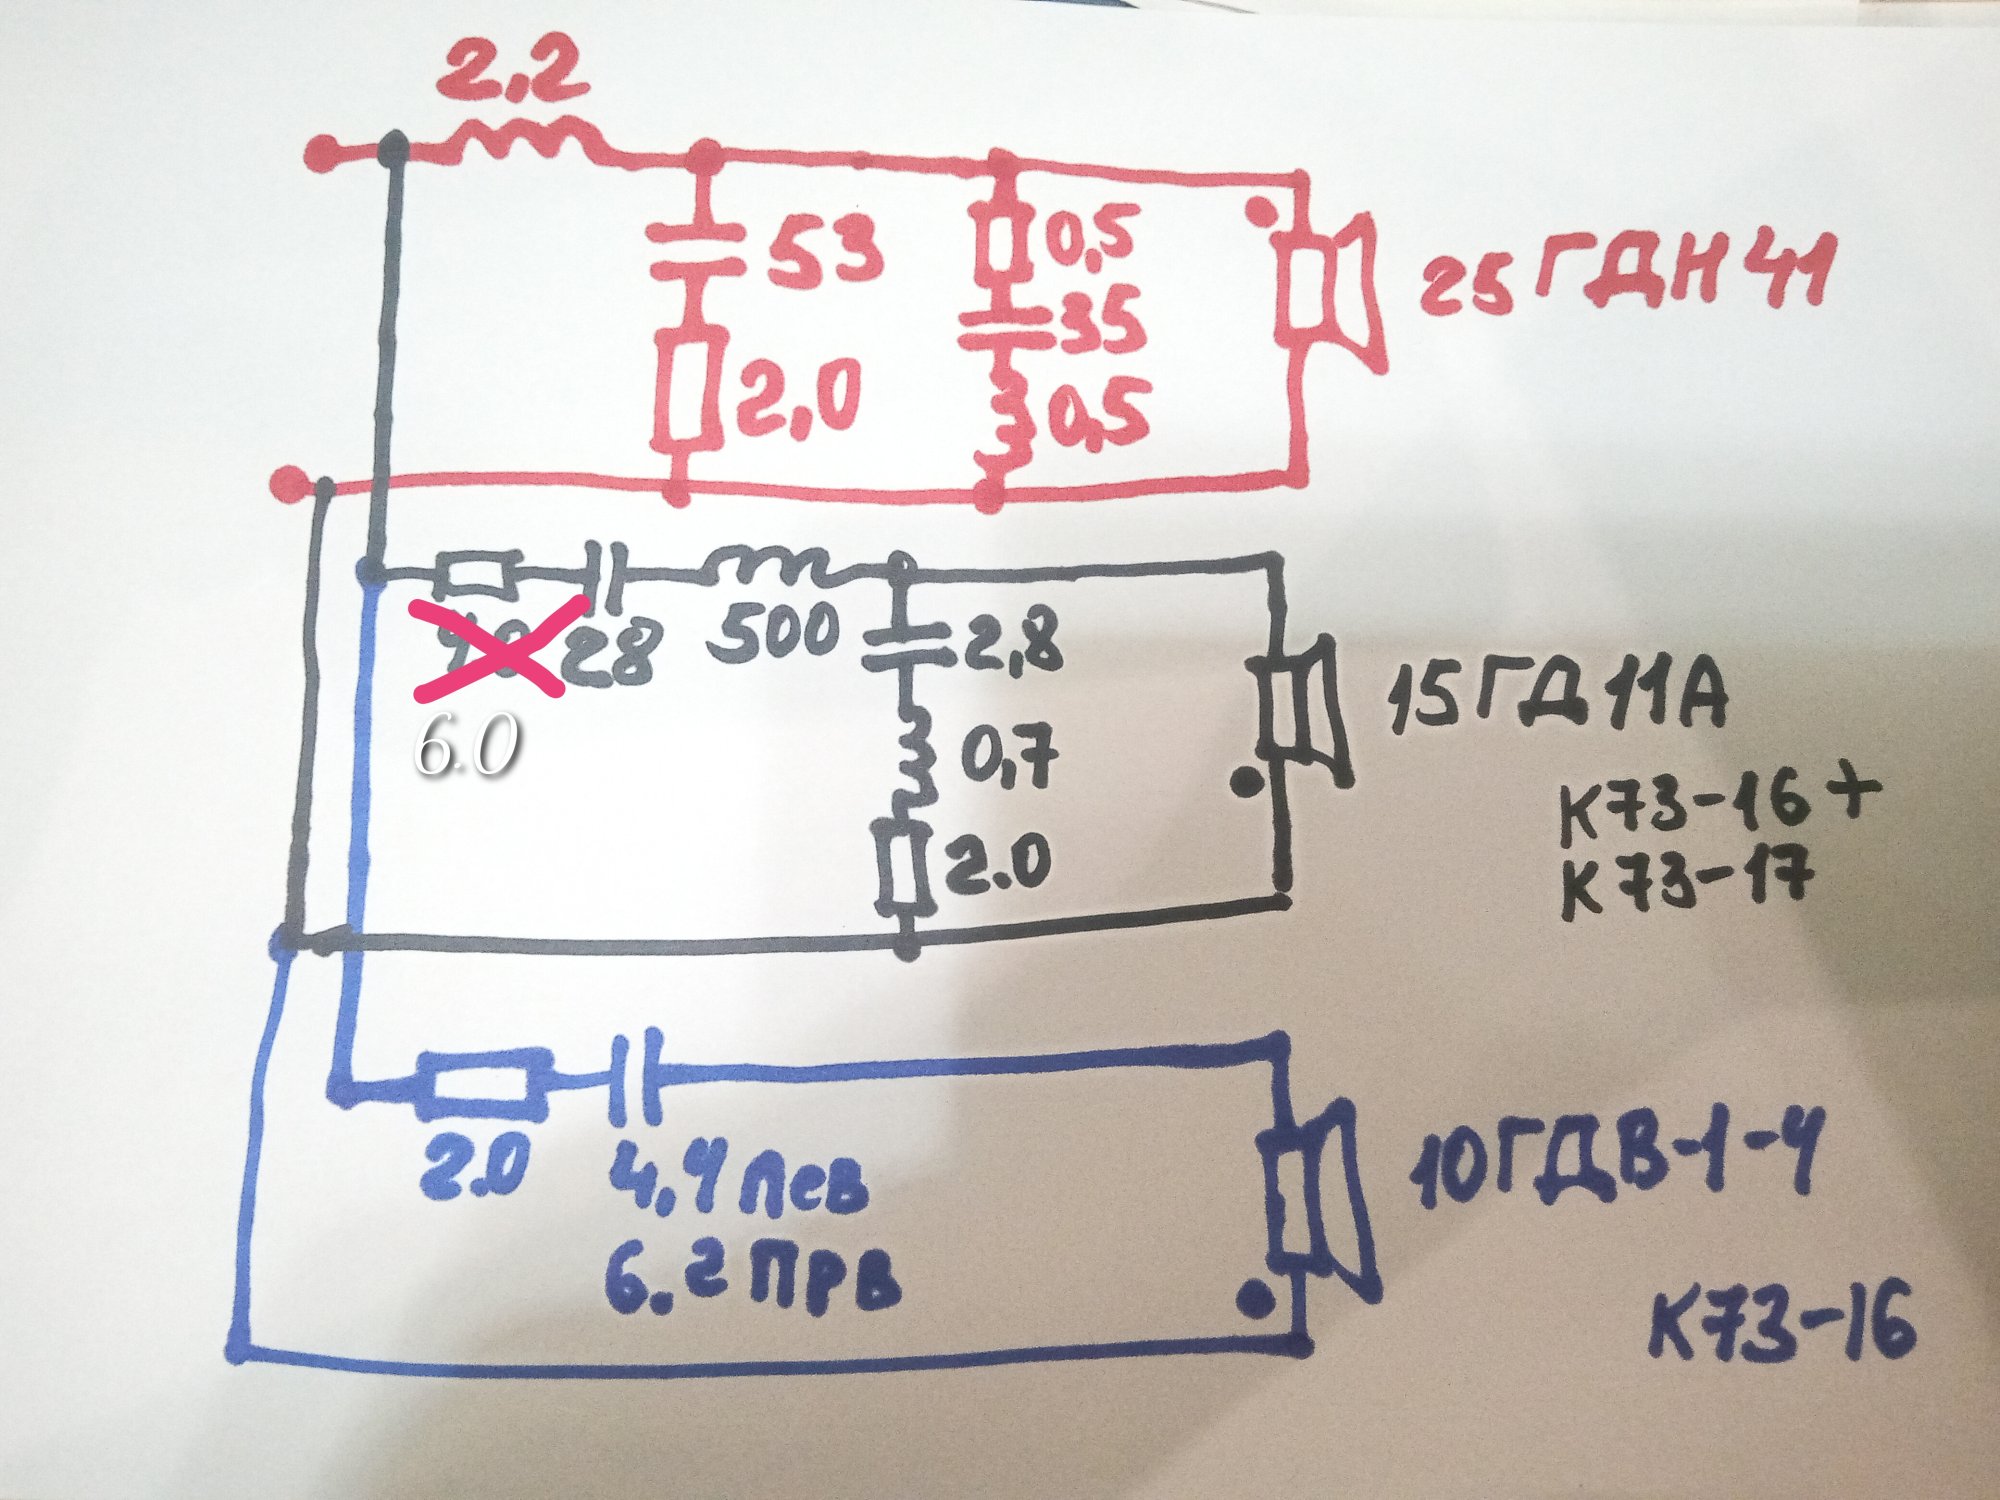 2,2
53
2,0
0,5
35
0,5
25ГДН41
6.0
28
500
2,8
0,7
2.0
15ГД11А
К73-16+
К73-17
2.0
4,4 лев
6.2 прв
10ГДВ-1-4
К73-16